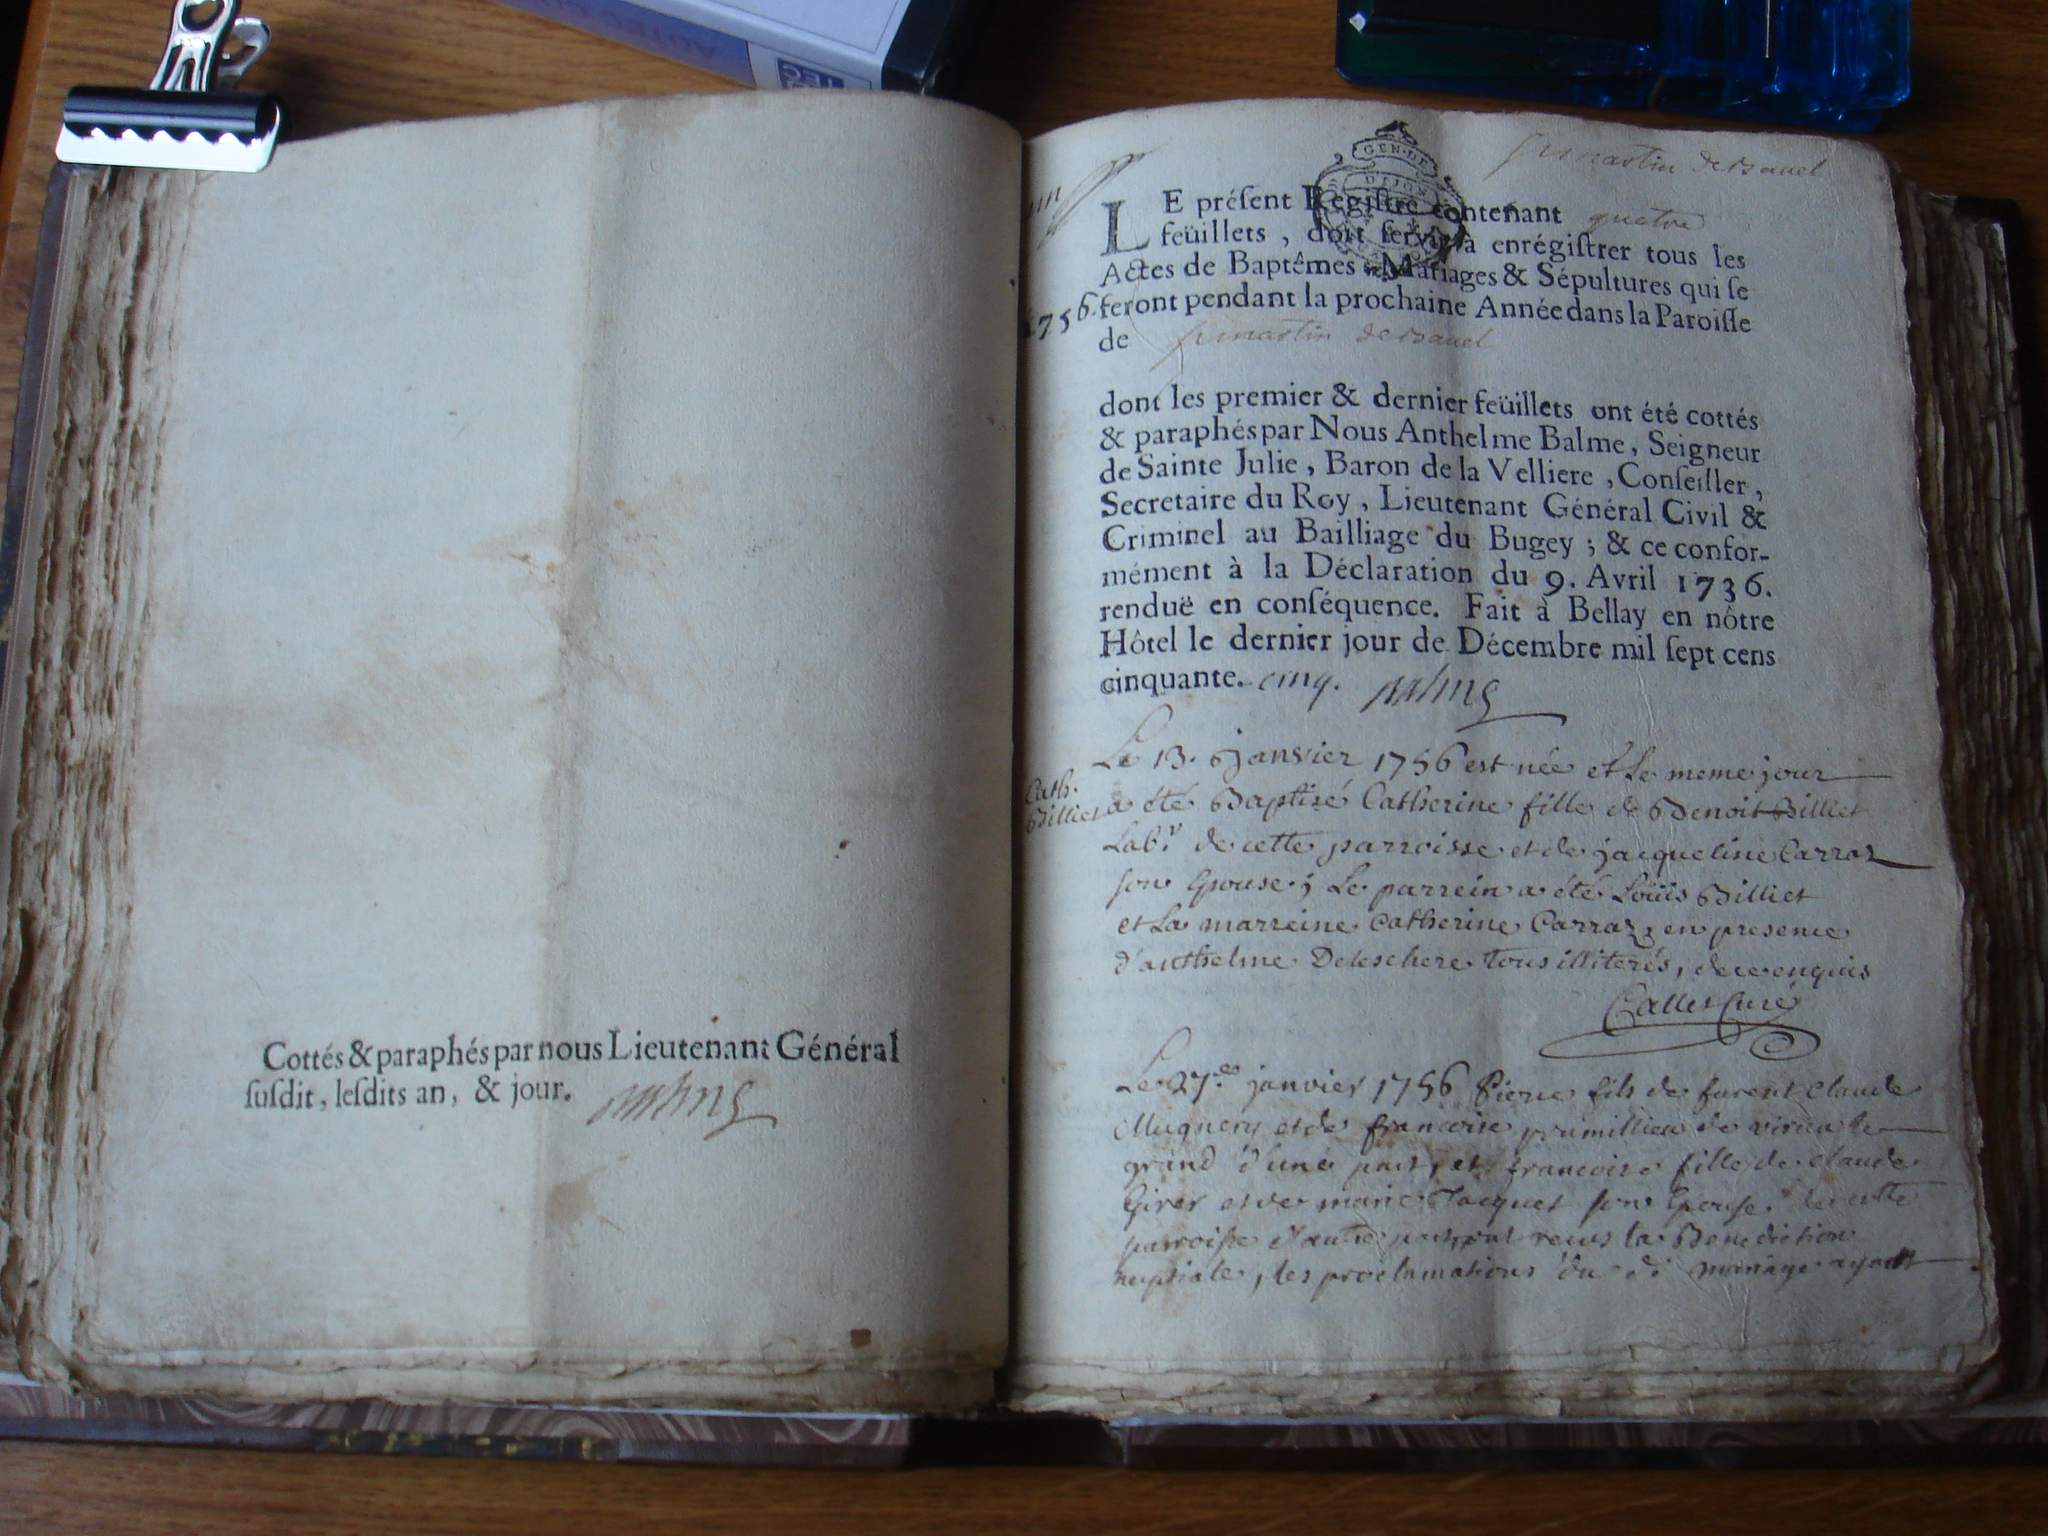 Cottés & paraphés par nous Lieutenant Général
ſuſdit, leſdits an, & jour.
GEN·DE
DIJON
St martin de Bavel
LE préſent Regiſtre contenant quatre
feüillets, doit ſervir à enrégiſtrer tous les
Actes de Baptêmes, Mariages & Sépultures qui ſe
1756. feront pendant la prochaine Année dans la Paroiſſe
de St martin de Bavel
dont les premier & dernier feüillets ont été cottés
& paraphés par Nous Anthelme Balme, Seigneur
de Sainte Julie, Baron de la Velliere, Conſeiller,
Secretaire du Roy, Lieutenant Général Civil &
Criminel au Bailliage du Bugey ; & ce confor-
mément à la Déclaration du 9. Avril 1736.
renduë en conſéquence. Fait à Bellay en nôtre
Hôtel le dernier jour de Décembre mil ſept cens
cinquante. cinq. Balme
Le 13. janvier 1756 est née et le meme jour
Cath.
Billiet
a été Baptisé Catherine fille de Benoit Billiet
Labr. de cette parroisse et de jacqueline Carraz
son Epouse; Le parrein a été Loüis Billiet
et La marreine Catherine Carraz, en presence
d'anthelme Deleschere tous illiterés, de ce enquis
Callet Curé
Le 27.e janvier 1756 Pierre fils de furent Claude
Muguery et de francoise de virieu le
grand d'une part, et francoise fille de claude
Girer et de marie Jacquet son Epouse de cette
parroisse d'autre part, ont recus la Benediction
nuptiale, les proclamations du di mariage ayant